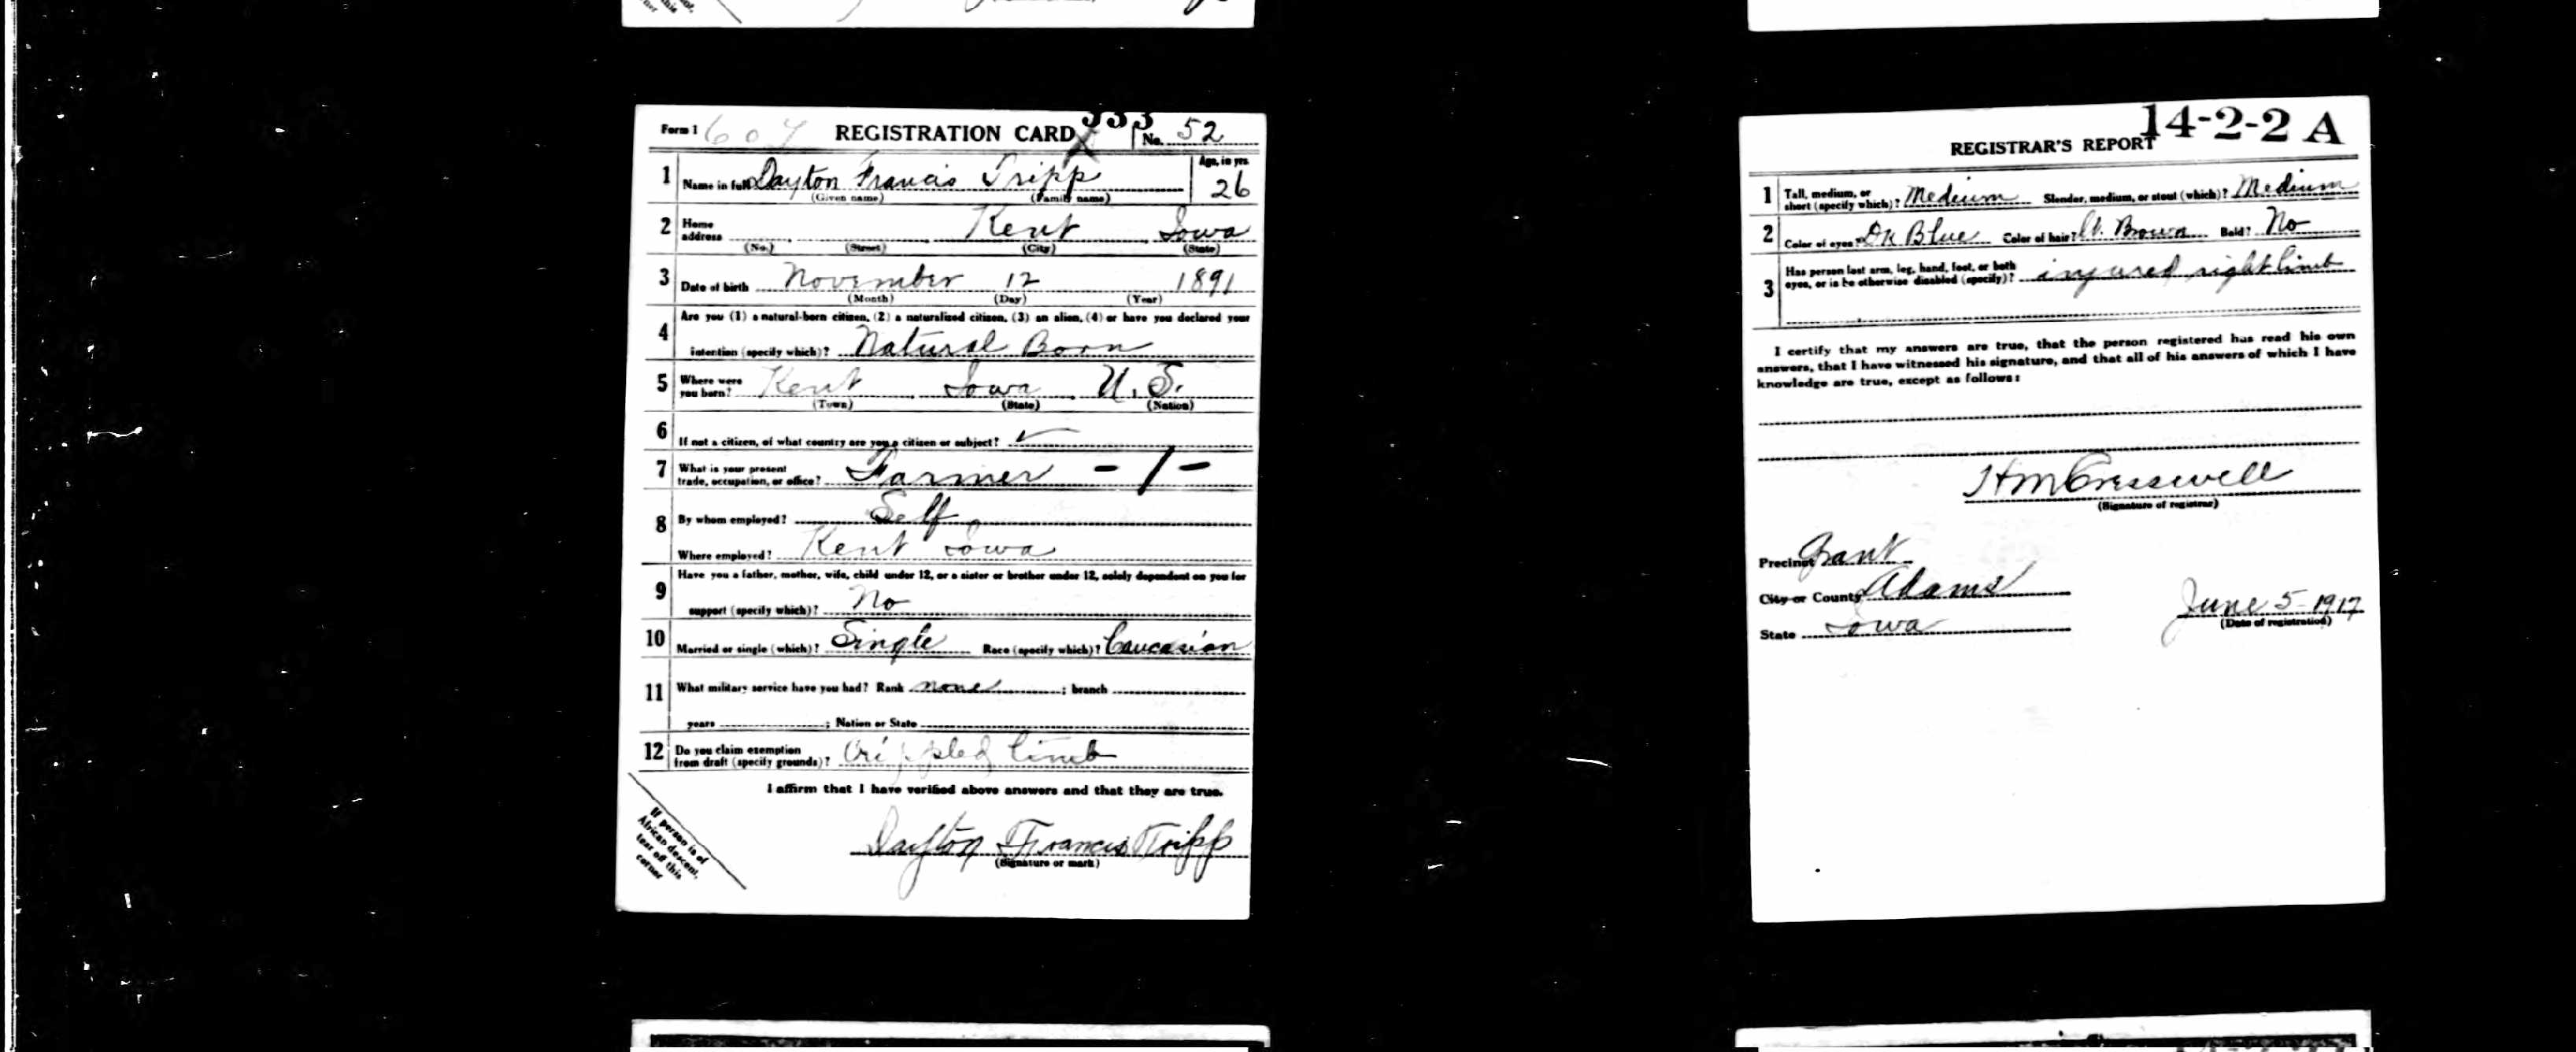 333
Form 1 607 REGISTRATION CARD No. 52
1 Name in full Dayton Francis Tripp Age, in yrs. 26
(Given name) (Family name)
2 Home address Kent Iowa
(No.) (Street) (City) (State)
3 Date of birth November 12 1891
(Month) (Day) (Year)
4 Are you (1) a natural-born citizen, (2) a naturalized citizen, (3) an alien, (4) or have you declared your
intention (specify which)? Natural Born
5 Where were you born? Kent Iowa U.S.
(Town) (State) (Nation)
6 If not a citizen, of what country are you a citizen or subject? ✓
7 What is your present
trade, occupation, or office? Farmer - 1 -
8 By whom employed? Self
Where employed? Kent Iowa
9 Have you a father, mother, wife, child under 12, or a sister or brother under 12, solely dependent on you for
support (specify which)? No
10 Married or single (which)? Single Race (specify which)? Caucasian
11 What military service have you had? Rank none ; branch
years ; Nation or State
12 Do you claim exemption
from draft (specify grounds)? Crippled limb
I affirm that I have verified above answers and that they are true.
Dayton Francis Tripp
(Signature or mark)
If person is of
African descent,
tear off this
corner
14-2-2 A
REGISTRAR'S REPORT
1 Tall, medium, or
short (specify which)? Medium Slender, medium, or stout (which)? Medium
2 Color of eyes? Dk Blue Color of hair? Brown Bald? No
3 Has person lost arm, leg, hand, foot, or both
eyes, or is he otherwise disabled (specify)? injured right limb
I certify that my answers are true, that the person registered has read his own
answers, that I have witnessed his signature, and that all of his answers of which I have
knowledge are true, except as follows:
H M Cresswell
(Signature of registrar)
Precinct Grant
City or County Adams
State Iowa
June 5-1917
(Date of registration)